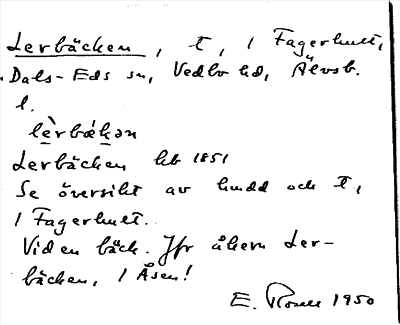 Lerbäcken, t, 1 Fagerhult,
Dals-Eds sn, Vedbo hd, Älvsb.
l.
lèrbækən
Lerbäcken hb 1851
Se översikt av hmdd och t,
1 Fagerhult.
Vid en bäck. Jfr åkern Ler-
bäcken, 1 Åsen!
E. 1950